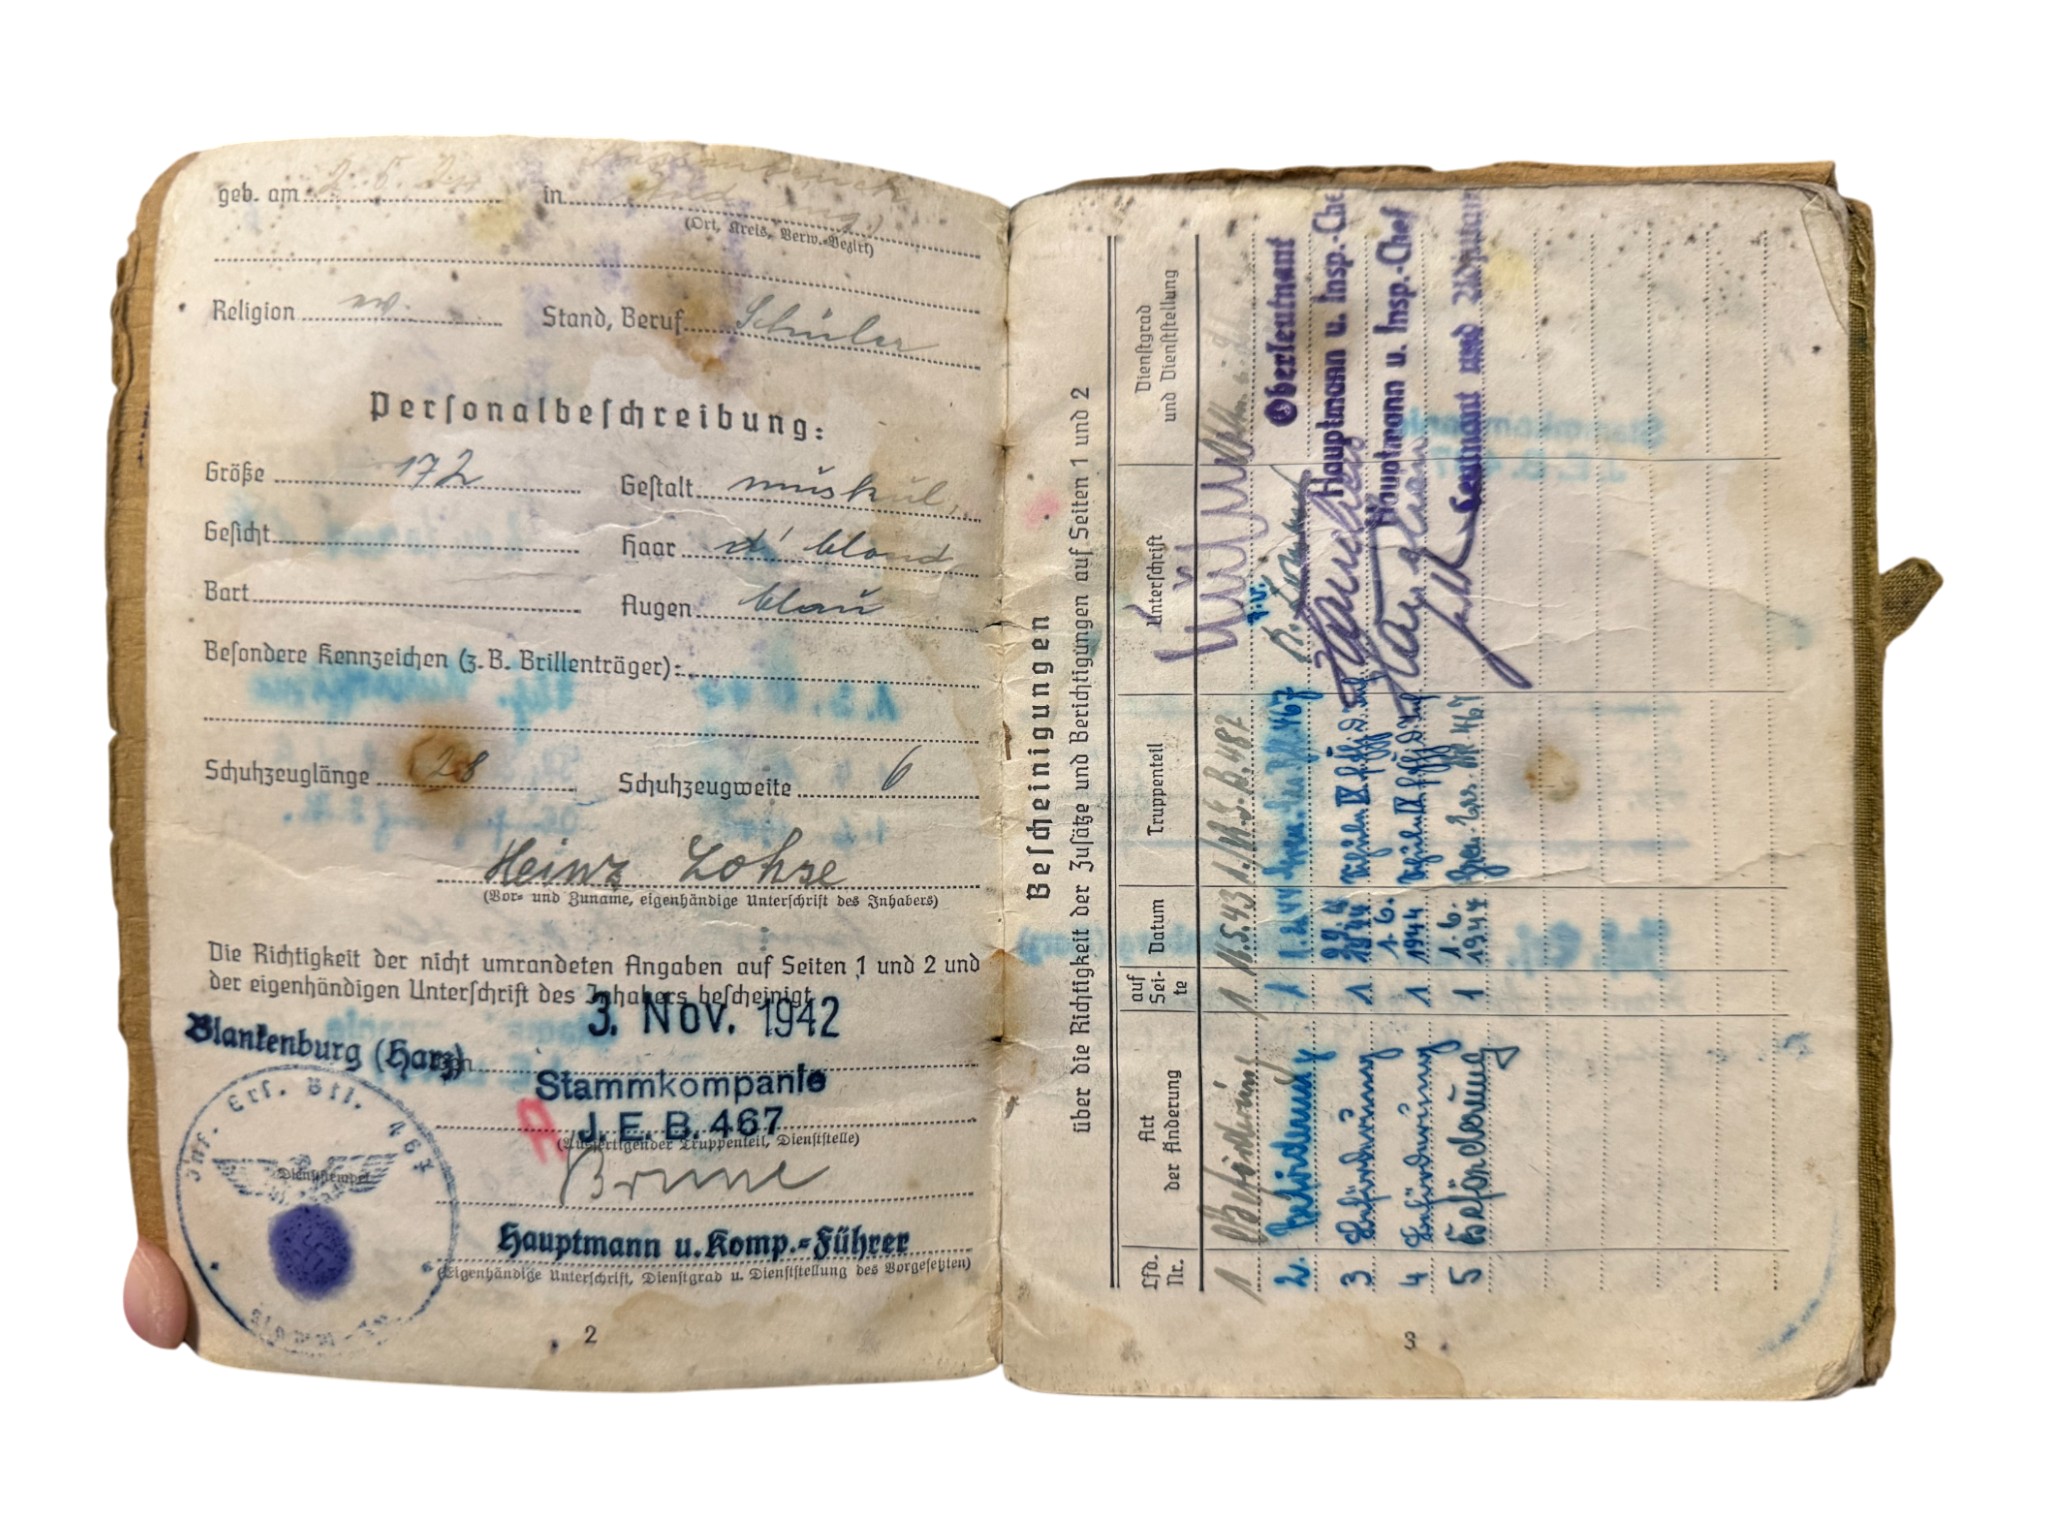 geb. am 2. 5. 24 in
(Ort, Kreis, Verw.-Bezirk)
Religion ev. Stand, Beruf Schüler
Personalbeschreibung:
Größe 172 Gestalt muskul.
Gesicht Haar d' blond
Bart Augen blau
Besondere Kennzeichen (z. B. Brillenträger):
Schuhzeuglänge 28 Schuhzeugweite 6
Heinz Lohse
(Vor- und Zuname, eigenhändige Unterschrift des Inhabers)
Die Richtigkeit der nicht umrandeten Angaben auf Seiten 1 und 2 und
der eigenhändigen Unterschrift des Inhabers bescheinigt
3. Nov. 1942
Blankenburg (Harz)
Stammkompanie
A J. E. B. 467
(Ausfertigender Truppenteil, Dienststelle)
Inf. Ers. Btl. 467
Dienststempel
Brune
Hauptmann u. Komp.-Führer
(Eigenhändige Unterschrift, Dienstgrad u. Dienststellung des Vorgesetzten)
2
Bescheinigungen
über die Richtigkeit der Zusätze und Berichtigungen auf Seiten 1 und 2
Lfd. Nr. Art der Änderung auf Seite Datum Truppenteil Unterschrift Dienstgrad und Dienststellung
1 Beförderung 1 11.5.43
2. Beförderung 1 467 Oberleutnant
3 Beförderung 1 1944 Hauptmann u. Insp.-Che
4 Beförderung 1 1. 6. 1944 Hauptmann u. Insp.-Chef
5 Beförderung 1 1. 6. 1944 467 Leutnant und
3